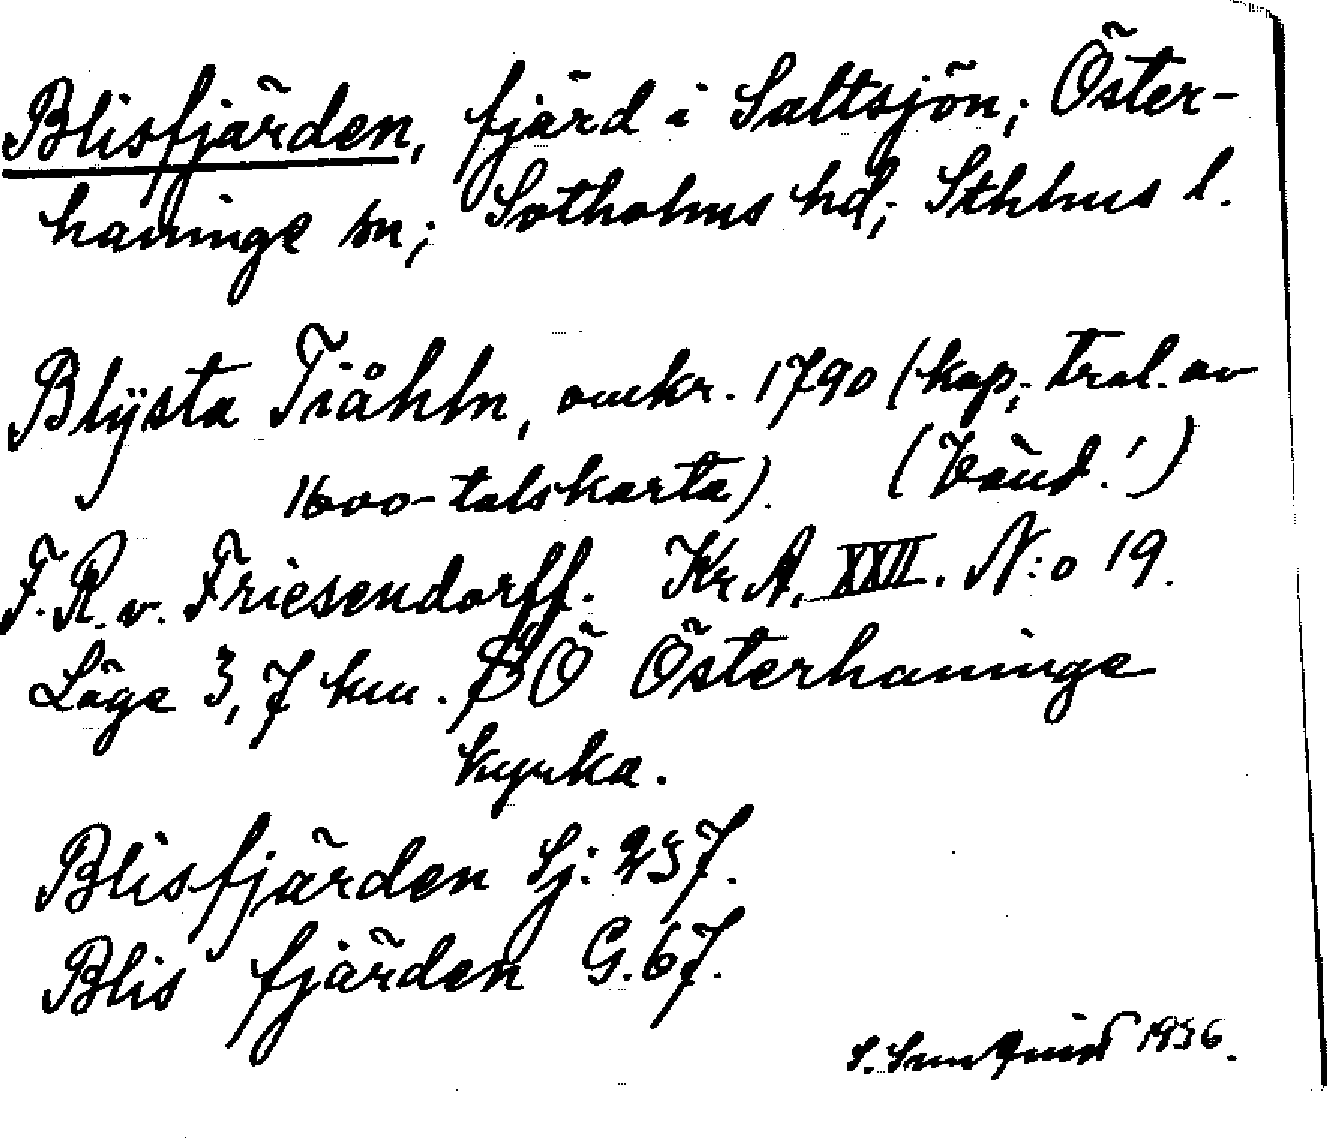 Blisfjärden, fjärd i Saltsjön; Öster-
haninge sn; Sotholms hd; Sthlms l.
Blÿsta Fiåhln, omkr. 1790 (kop; trol. av
1600-talskarta). (Vänd!)
F.R.v. Friesendorff. Kr A. XXII. N:o 19.
Läge 3,7 km. SÖ Österhaninge
kyrka.
Blisfjärden Sj: 237.
Blis fjärden G. 67.
S. 1936.